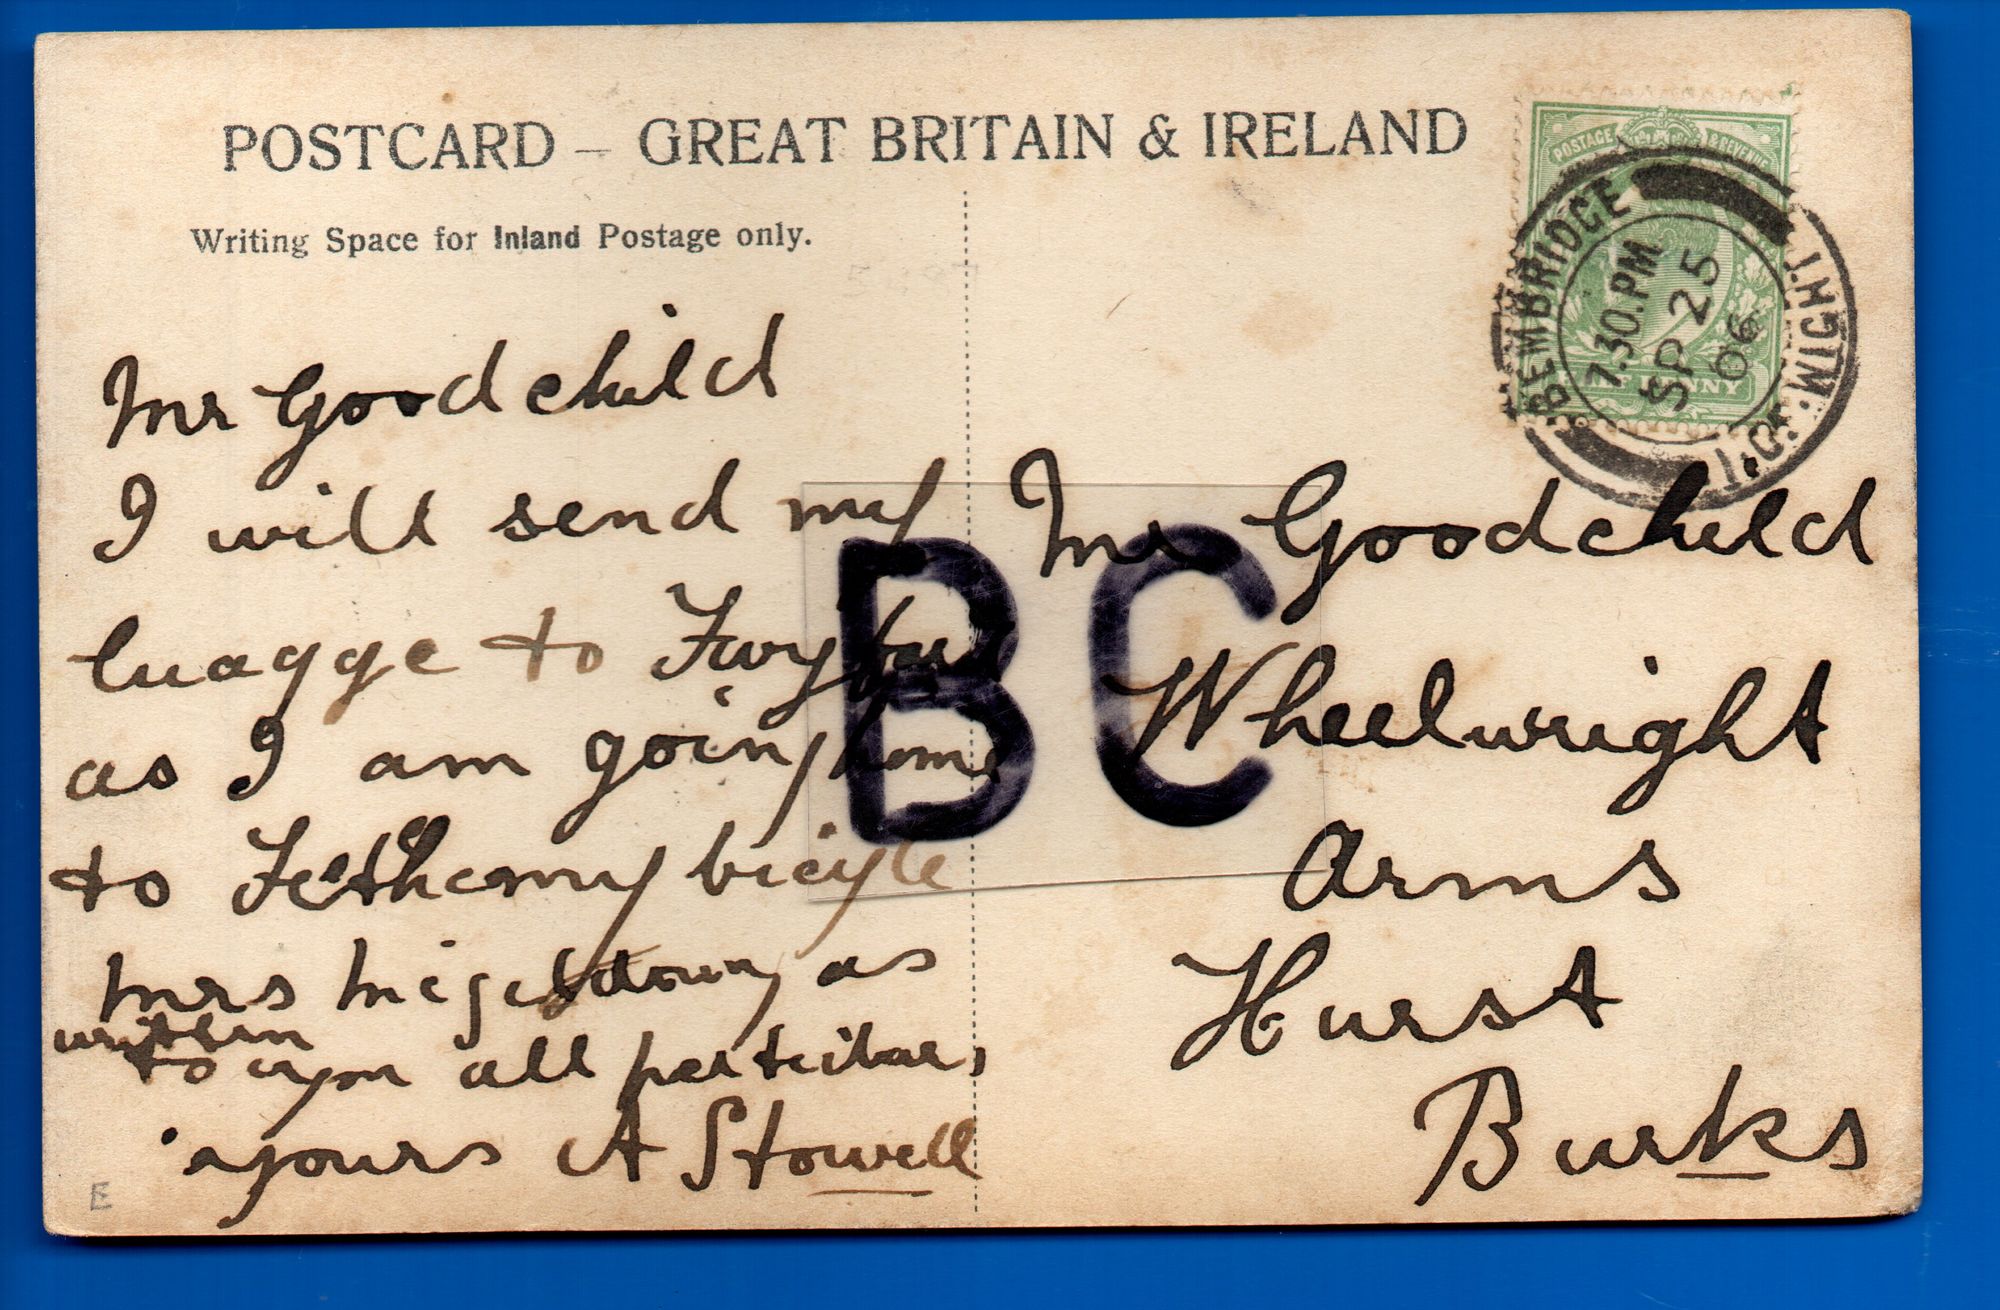 POSTCARD – GREAT BRITAIN & IRELAND
Writing Space for Inland Postage only.
POSTAGE & REVENUE
HALFPENNY
BEMBRIDGE
7.30.PM
SP 25
06
I.OF.WIGHT
Mr Goodchild
I will send my
luagge to
as I am going home
to Fethe my bicyle
Mrs as
written
to you all perticular,
yours A Stowell
Mr Goodchild
Wheelwright
Arms
Hurst
Burks
BC
E